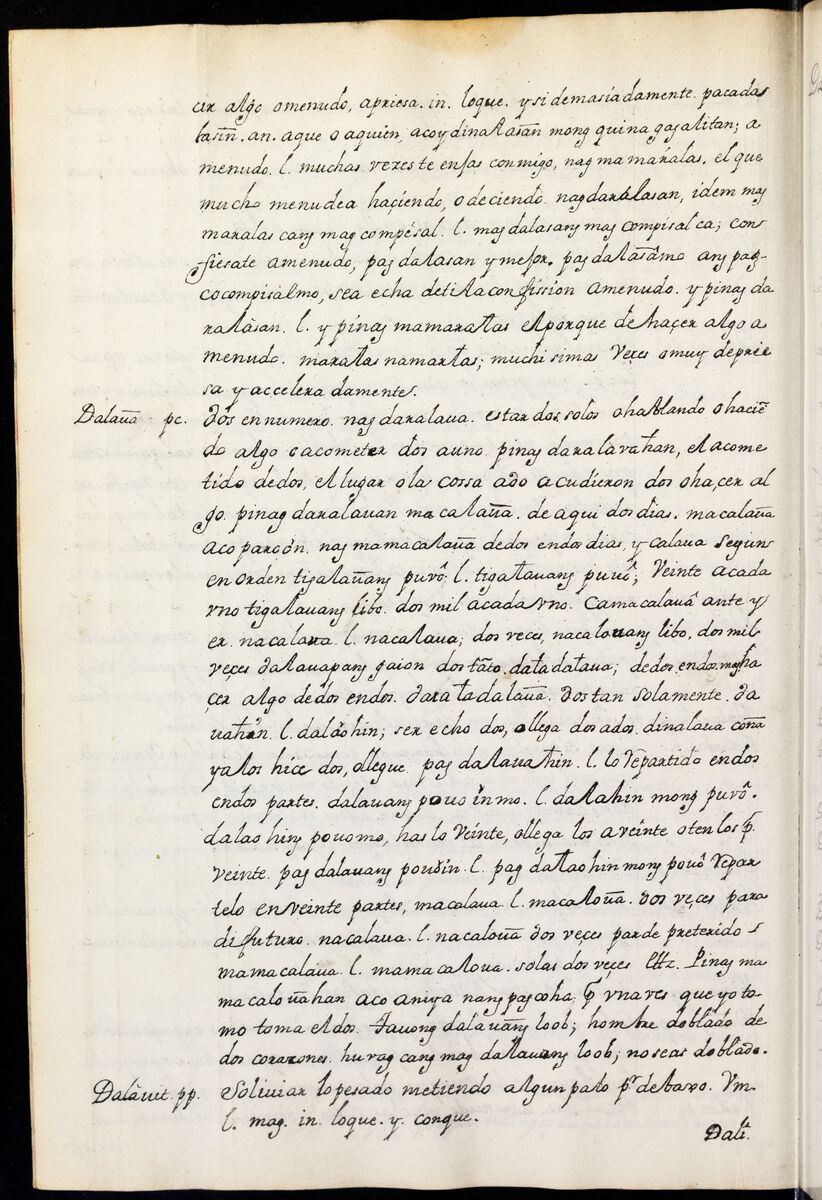 cer algo omenudo, apriesa. in. loque. ysi demasiadamente. pacadas
lasin̄. an. aque o aquien, acoy dinalasan̄ mong quinagagalitan; a
menudo. l. muchas vezes te enojas conmigo, nag maralas. el que
mucho menudea haçiendo, o deciendo. nagdaralasan, idem mag
maralas cang mag compésal. l. magdalasang mag compisal ca; con
fiesate amenudo, pag dalasan y mejor. pag dalasāmo ang pag-
cocompisalmo, sea echa deti la confission amenudo. y pinag da
ralàsan. l. y pinag mamaralas elporque de haçer algo a
menudo. maralas namarlas; muchisimas veçes o muy deprie
sa y acceleradamente.
Dalaūa pc. dós en numero. nag daralaua. estar dos, solos o hablando o haciē
do algo o acometer dos auno. pinag daralavahan, el acome
tido dedos, el lugar o la cossa ado acudieron dos ohaçer al
go. pinagdaralauan macalaūa. de aqui dos dias. macalaūa
aco paroón. nag mamacalaūa dedos endos dias, y calaua segun
en orden tigalaūang puvô; l. tigalauang puuô; Veinte acada
vno tigalauang libo. dos mil acadavno. Camacalauâ ante y
er. nacalaua. l. nacalaua; dos veces, nacalouang libo, dos mil
veçes dalauapang gaion dos tāto. daladalaua; dedos endos
çer algo dedos endos. daraladalaūa. dos tan solamente. da
uahin. l. dalàohin; ser echo dos, o llega dos ados. dinalaua
yalos hice dos, ollegue. pag dalauahin. l. lo repartido endos
endos partes. dalauang pouoinmo. l. dalahin mong puvô.
dalaohing pouomo, has lo Veinte, ollega los aveinte oten los
veinte. pag dalauang pouoin. l. pag dalaohin mong pouô repar
telo enveinte partes, macalaua. l. macaloūa. dos veçes para
di futuro. nacalaua. l. nacaloūa dos veçes parde preterido
mamacalaua. l. mamacaloua. solas dos veçes Pinagma
macaloūahan aco aniya nang pag vnaves que yo to
mo toma eldos. tauong dalauāng loob; hombre doblado de
dos corazones. huvag cang mag dalauang loob; noseas doblado.
Dalàuit. pp. soliviar lo pesado metiendo algun palo pr debaxo. Vm.
l. mag. in. loque. y. conque.
Dali.